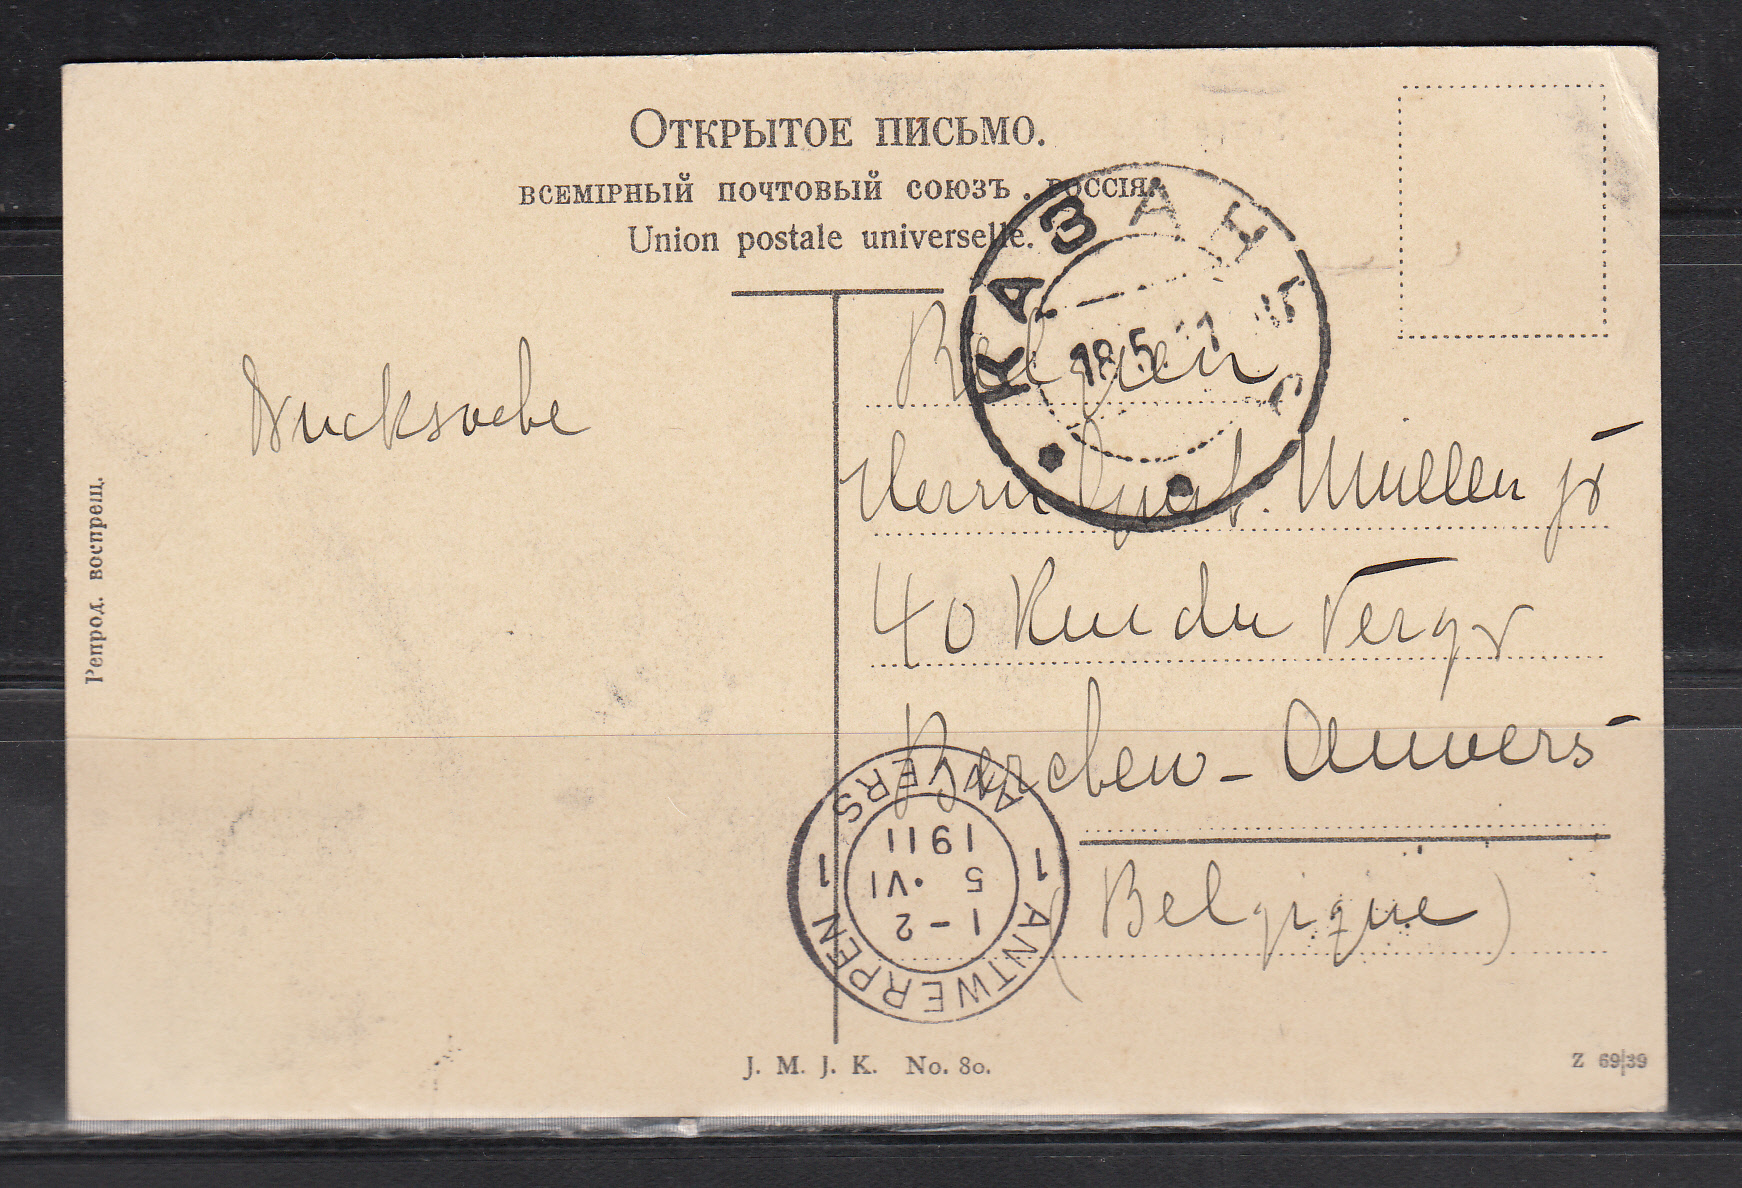 Открытое письмо.
всемірный почтовый союзъ. Россія
Union postale universelle.
КАЗАНЬ
18.5.11
Drucksache
Belgien
Herrn Gust. Müller jr
40 Rue du Verger
Berchem - Anvers
(Belgique)
ANVERS
1911
5 • VI
1 - 2
1 ANTWERPEN 1
Репрод. воспрещ.
J. M. J. K. No. 80.
Z 69|39